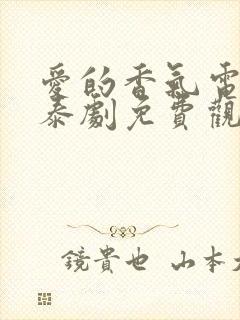 愛的香氣電
泰劇免費觀
鏡貴也 山本